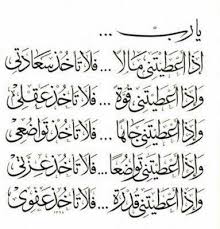 يارب ...
إذا أعطيتني مالا ... فلا تأخذ سعادتي
وإذا أعطيتني قوة ... فلا تأخذ عقلي
وإذا أعطيتني جاها ... فلا تأخذ تواضعي
وإذا أعطيتني تواضعا ... فلا تأخذ عزتي
وإذا أعطيتني قدرة ... فلا تأخذ عفوي